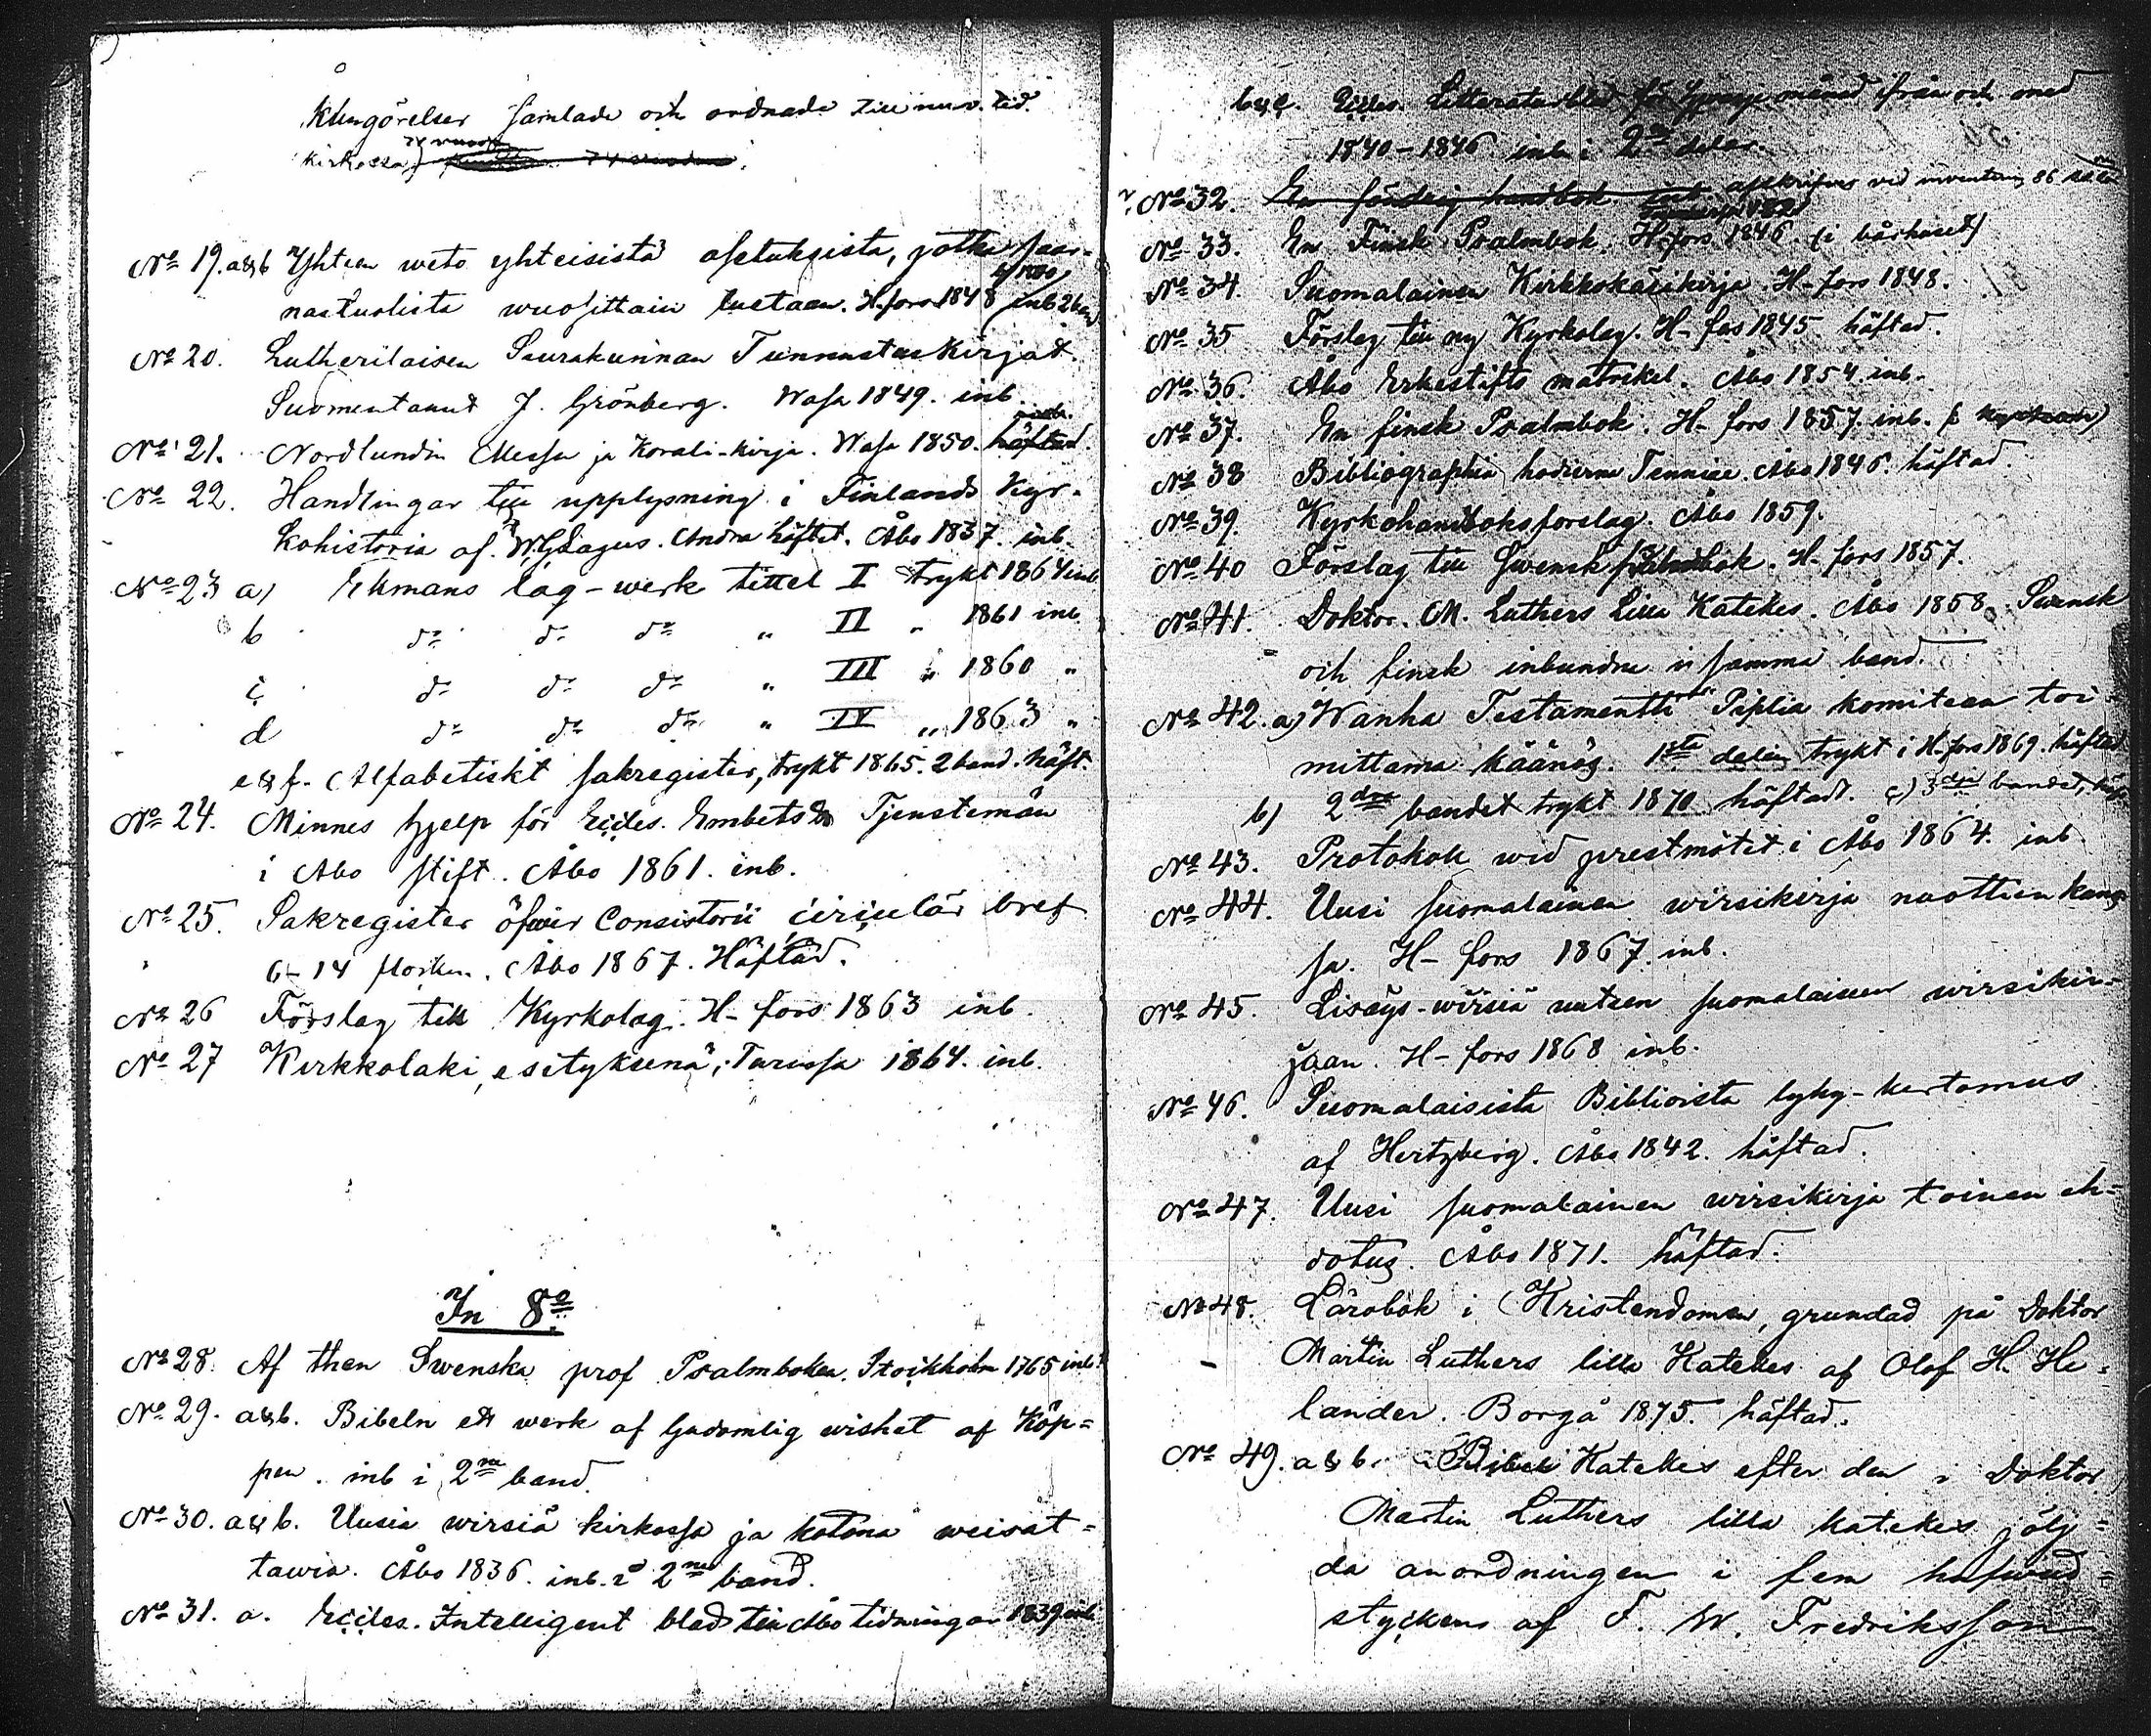 Kungörelser samlade och ordnade till nuv. tid.
kirkossa
No 19. a&b Yhteen weto yhteisistä asetuksista, jotka saar-
nastuolista wuosittain luetaan. H.fors 1848 inb 2 band
No 20. Lutherilaisen Seurakunnan Tunnustus Kirjat.
Suomentanut J. Grönberg. Wasa 1849. inb.
No 21. Nordlundin Messu ja Korali-kirja. Wasa 1850. häftad.
No 22. Handlingar till upplysning i Finlands Kyr-
kohistoria af W.G. Lagus. Andra häftet. Åbo 1837. inb.
No 23 a) Ekmans lag-werk tittel I trykt 1864 inb
b do do do " II " 1861 inb.
c do do do " III " 1860 "
d do do do " IV " 1863 "
e & f. Alfabetiskt sakregister, trykt 1865. 2 band. häft.
No 24. Minnes hjelp för Eccles. Embets & Tjenstemän
i Åbo stift. Åbo 1861. inb.
No 25. Sakregister öfwer Consistorii circulär bref
6-14 Åbo 1867. Häftad.
No 26 Förslag till Kyrkolag. H-fors 1863 inb.
No 27 Kirkkolaki, esityksenä, Turussa 1864. inb.
In 8o
No 28. Af then Swenska prof Psalmboken. Stockholm 1765 inb.
No 29. a&b. Bibeln ett werk af Gudomlig wishet af Köp=
pen. inb i 2ne band.
No 30. a&b. Uusia wirsiä kirkossa ja kotona weisat=
tawia. Åbo 1836. inb. i 2ne band.
No 31. a. Eccles. Intelligent blad till Åbo tidningar 1839 inb
b&c. Eccles. Litteraturblad för hvarje månad ifrån och med
1840-1846 inb i 2ne delar.
No 32. En handbok afskrifves vid inventering 86
No 33. En Finsk Psalmbok. H-fors 1846. (i bårhuset)
No 34. Suomalainen Kirkkokäsikirja. H-fors 1848.
No 35 Förslag till ny Kyrkolag. H-fors 1845 häftad.
No 36. Åbo Erkestifts matrikel. Åbo 1854. inb.
No 37. En finsk Psalmbok. H-fors 1857. inb.
No 38 Bibliographia hodierna Fenniae. Åbo 1846. häftad.
No 39. Kyrkohandboksforslag. Åbo 1859.
No 40 Förslag till Swensk psalmbok. H-fors 1857.
No 41. Doktor. M. Luthers Lilla Katekes. Åbo 1858. Swensk
och finsk inbundna i samma band.
No 42. a) Wanha Testamentti Piplia komitean toi-
mittama käänös. 1sta delen trykt i H-fors 1869. häftad
b) 2dra bandet trykt 1870 häftadt. c) 3dje bandet, häft
No 43. Protokoll wid prestmötet i Åbo 1864. inb
No 44. Uusi suomalainen wirsikirja nuottien kans-
sa. H-fors 1867. inb.
No 45. Lisäys-wirsiä uuteen suomalaiseen wirsikir-
jaan. H-fors 1868 inb.
No 46. Suomalaisista Biblioista lyhy-kertomus
af Hertzberg. Åbo 1842. häftad.
No 47. Uusi suomalainen wirsikirja toinen eh-
dotus. Åbo 1871. häftad.
No 48. Lärobok i Kristendomen, grundad på Doktor
Martin Luthers lilla Katekes af Olof H. He-
lander. Borgå 1875. häftad.
No 49. a & b. Bibel Katekes efter den i Doktor
Martin Luthers lilla katekes följ=
da anordningen i fem hufwud=
stycken af F. W. Fredriksson